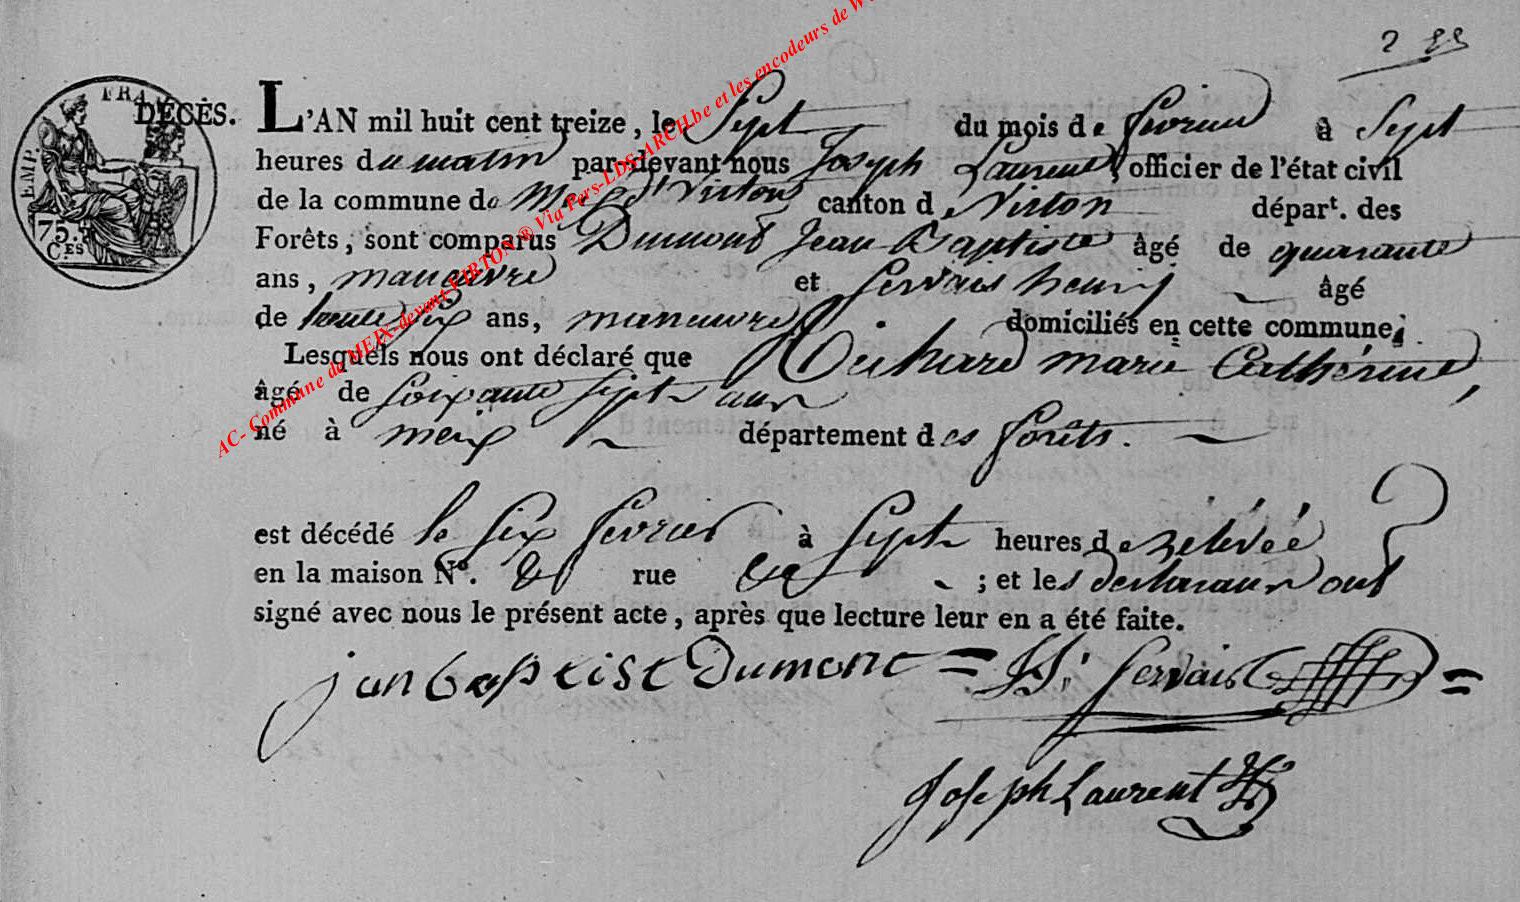 2
FRA
EMP.
75.
CES
DÉCÈS.
L'AN mil huit cent treize, le Sept du mois de fevrier à Sept
heures du matin par-devant nous Joseph Laurent, officier de l'état civil
de la commune de Meix dt Virton canton de Virtonépart. des
Forêts, sont comparus Dumont Jean Baptiste âgé de quarante
ans, maneuvre et Servais henrij âgé
de trente six ans, maneuvre domiciliés en cette commune;
Lesquels nous ont déclaré que marie Catherine,
âgé de soixante sept ans
né à meix département des forêts.
est décédé le six fevrier à Sept heures de relévéé
en la maison N°. rue ; et les declarans ont
signé avec nous le présent acte, après que lecture leur en a été faite.
jan baptist Dumont = Servais =
Joseph Laurent
AC- Commune de MEIX-devant-VIRTON ® Via Pers-LDS-ARCH.be et les encodeurs de